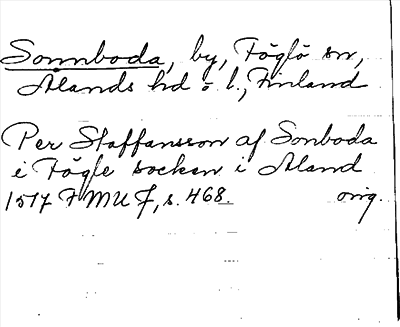 Sonnboda, by, Föglö sn,
Ålands hd o l., Finland
Per Staffansson af Sonboda
i Fögle socken i Åland
1517 FMU 7, s. 468. orig.